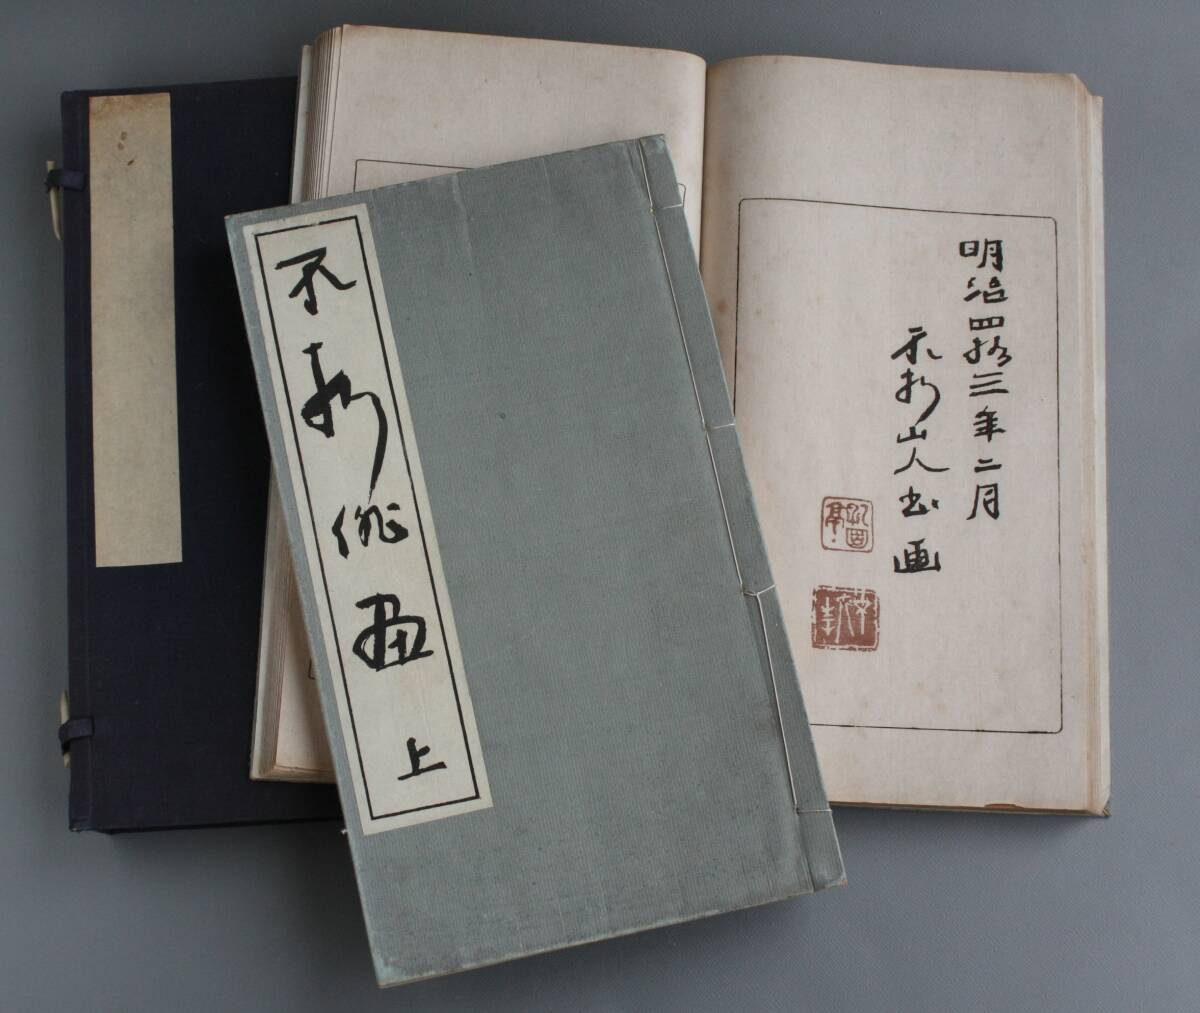 不折俳画
上
明治四拾三年二月
不折山人書画